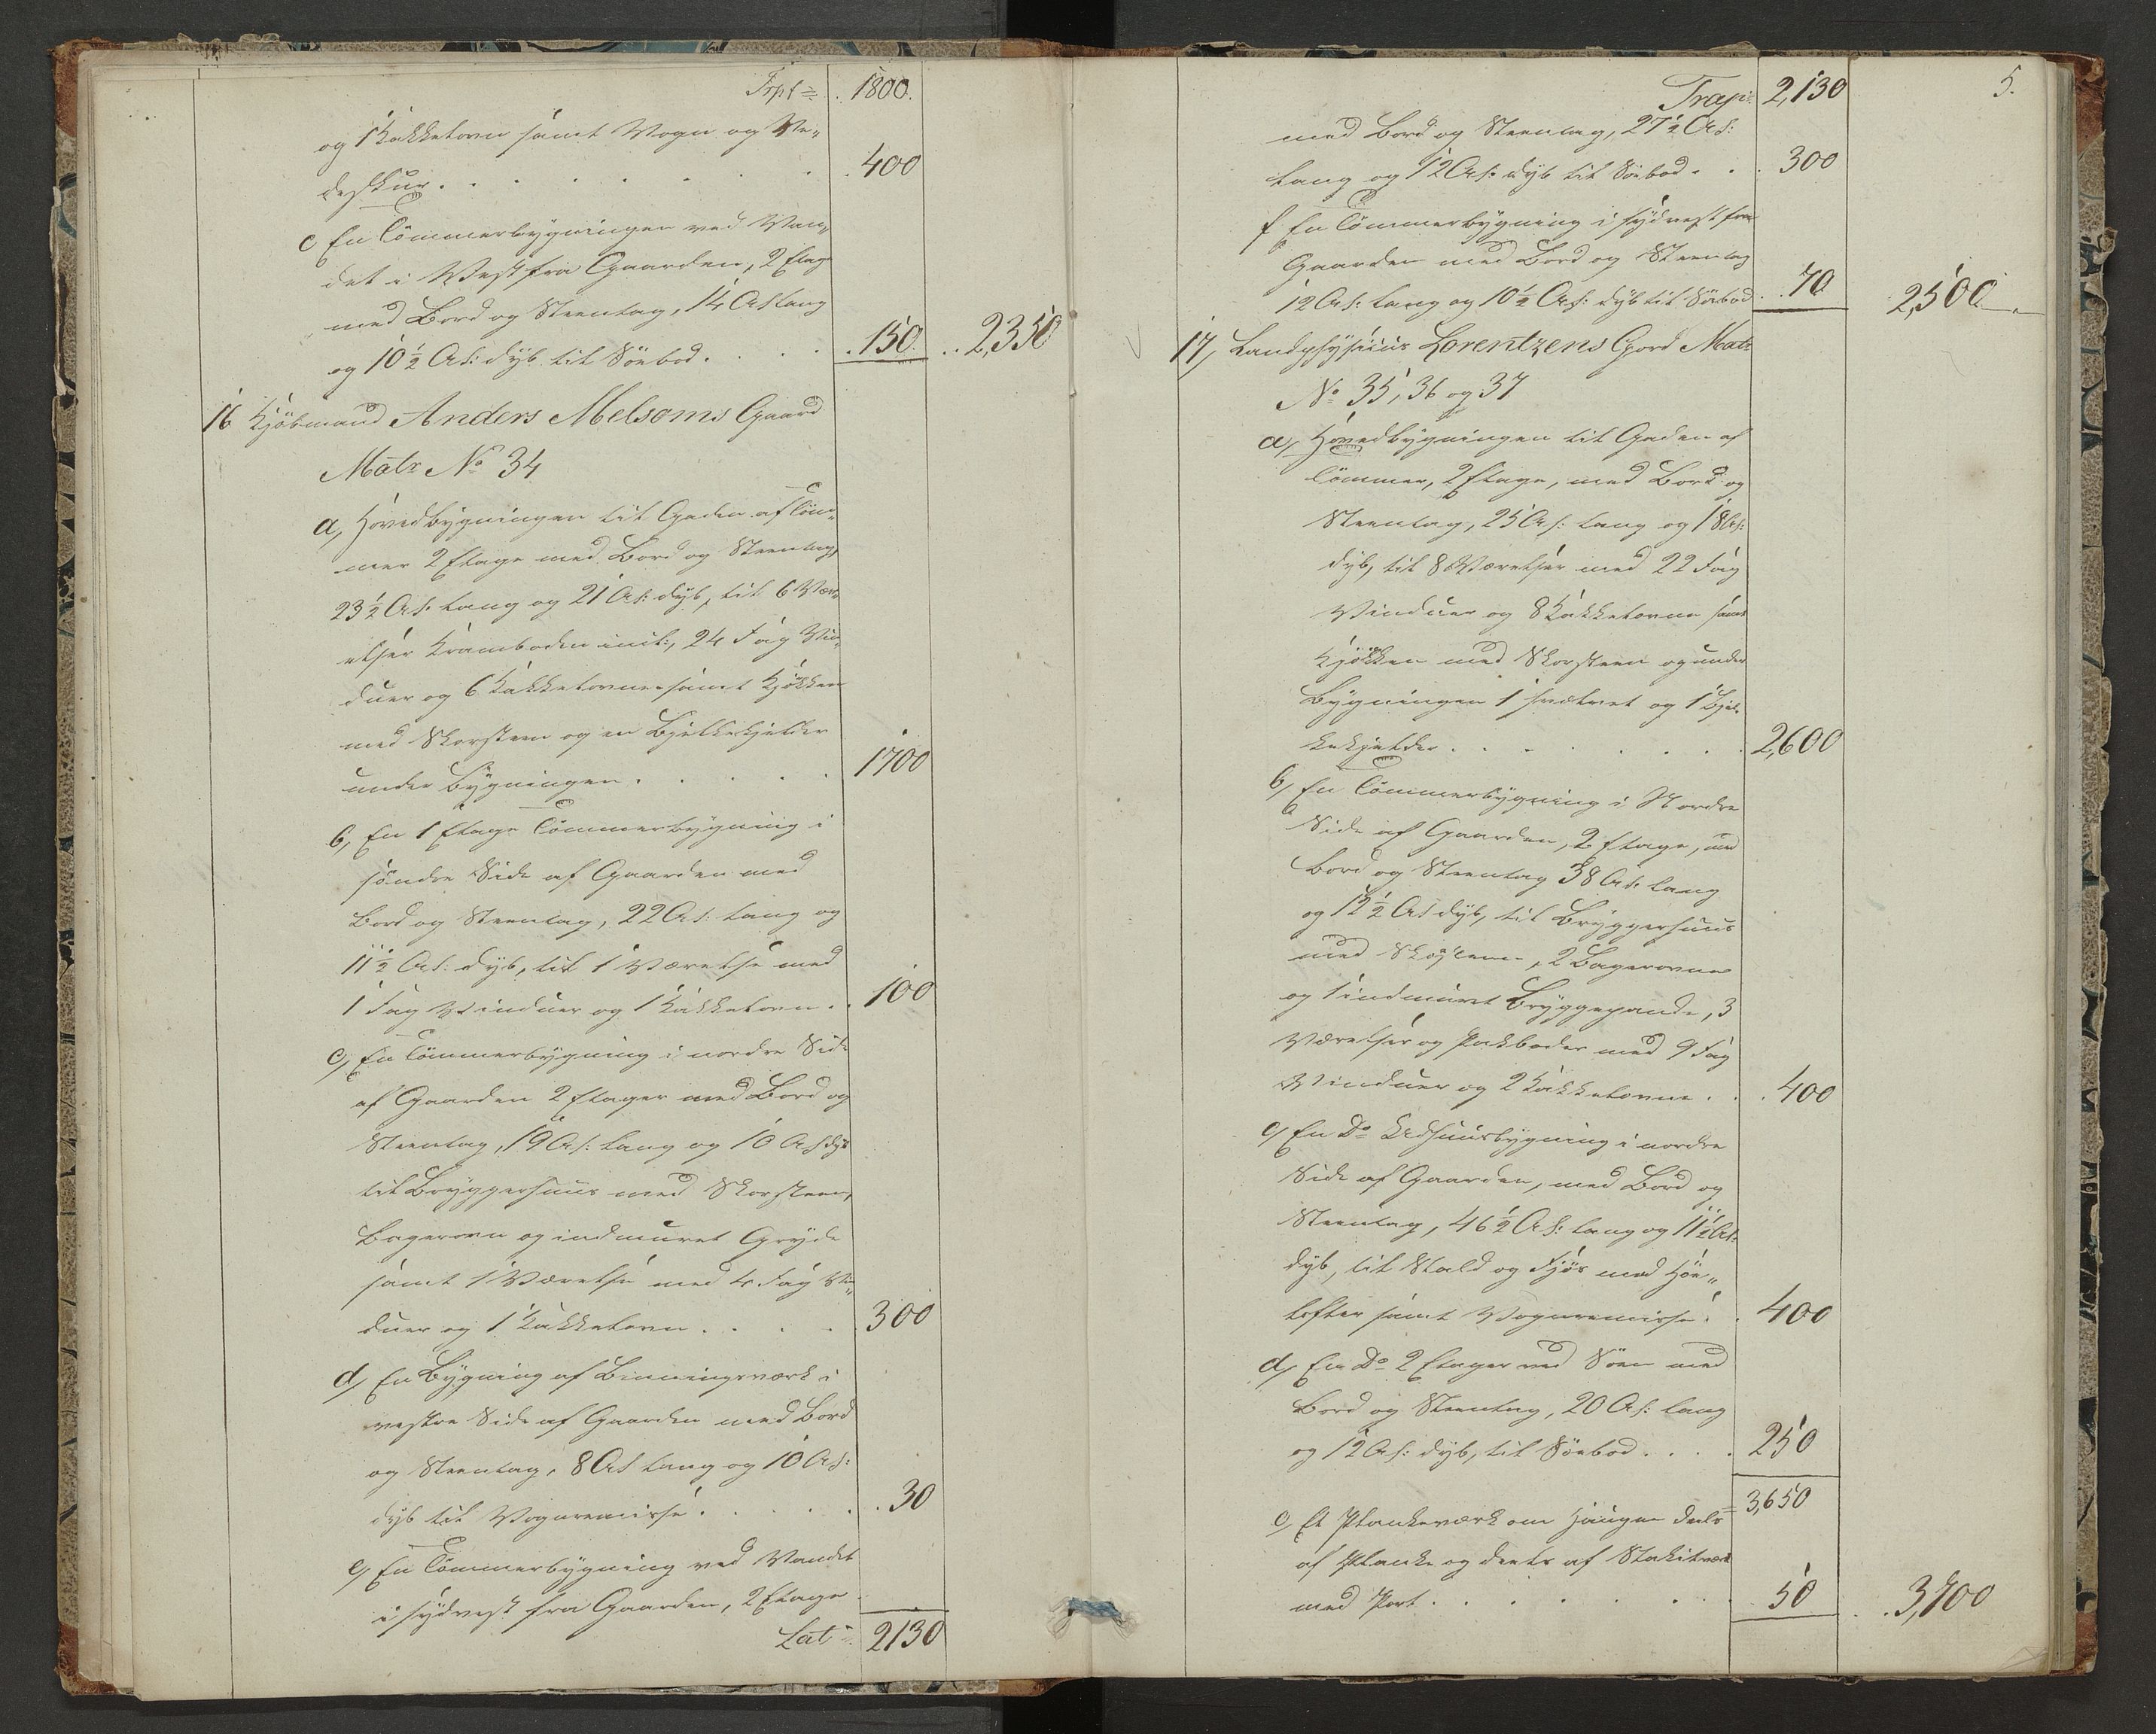 Trpt= 1800.
og 1 Kakkelovn samt Vogn og Ve„
deskur . . . . . . . . 400
c En Tömmerbygningen ved Van„
det i Vest fra Gaarden, 2 Etag
med Bord og Steentag, 14 Al lang
og 10½ Al: dyb til Söebod. . . . 150. 2,350
16 Kjöbmand Anders Melsoms Gaard
Matr No 34
a, Hovedbygningen til Gaden af Töm„
mer 2 Etage med Bord og Steentag,
23½ Al: lang og 21 Al: dyb, til 6 Væn
elser Kramboden incl:, 24 Fag Vin„
duer og 6 Kakkelovne samt Kjökken
med Skorsteen og en Bjelkekjelder
under Bygningen . . . . . 1700
b, En 1 Etage Tömmerbygning i
söndre Side af Gaarden med
Bord og Steentag, 22 Al: lang og
11½ Al: dyb, til 1 Værelse med
1 Fag Vinduer og 1 Kakkelovn. 100
c, En Tömmerbygning i nordre Side
af Gaarden 2 Etager med Bord og
Steentag, 19 Al: lang og 10 Al dyb
til Bryggerhuus med Skorsteen,
Bagerovn og indmuret Gryde
samt 1 Værelse med 4 Fag Vin„
duer og 1 Kakkelovn . . . . 300
d, En Bygning af Binningsværk i
vestre Side af Gaarden med Bord
og Steentag, 8 Al lang og 10 Al:
dyb til Vognremisse . . . . . 30
e, En Tömmerbygning ved Vandet
i sydvest fra Gaarden, 2 Etage
Lat= 2130
5.
Trap= 2,130
med Bord og Steentag, 27½ Al:
lang og 12 Al: dyb til Söebod . . 300
f En Tömmerbygning i sydvest fra
Gaarden med Bord og Steentag
12 Al: lang og 10½ Al: dyb til Söebod 70 2,500
17, Landphysicus Lorentzens Gord Matr
No 35, 36 og 37
a, Hovedbygningen til Gaden af
Tömmer, 2 Etage, med Bord og
Steentag, 25 Al: lang og 18 Al:
dyb, til 8 Værelser med 22 Fag
Vinduer og 8 Kakkelovne samt
Kjökken med Skorsteen og under
Bygningen 1 hvælvet og 1 Bjel-
kekjelder . . . . . . . . 2,600
b, En Tömmerbygning i Nordre
Side af Gaarden, 2 Etage, med
Bord og Steentag 38 Al: lang
og 12½ Al dyb, til Bryggerhuus
med Skorsteen, 2 Bagerovne
og 1 indmuret Bryggepande, 3
Værelser og Pakboder med 9 Fag
Vinduer og 2 Kakkelovne . . 400
c, En Do Udhuusbygning i nordre
Side af Gaarden, med Bord og
Steentag, 46½ Al: lang og 11½ Al:
dyb, til Stald og Fjös med Höe„
lofter samt Vognremisse . . 400
d, En Do 2 Etager ved Söen med
Bord og Steentag, 20 Al: lang
og 12 Al: dyb, til Söebod . . . . 250
3,650
e, Et Plankeværk om Haugen deels
af Planke og deels af Stakitværk
med Port . . . . . . . . 50 3,700